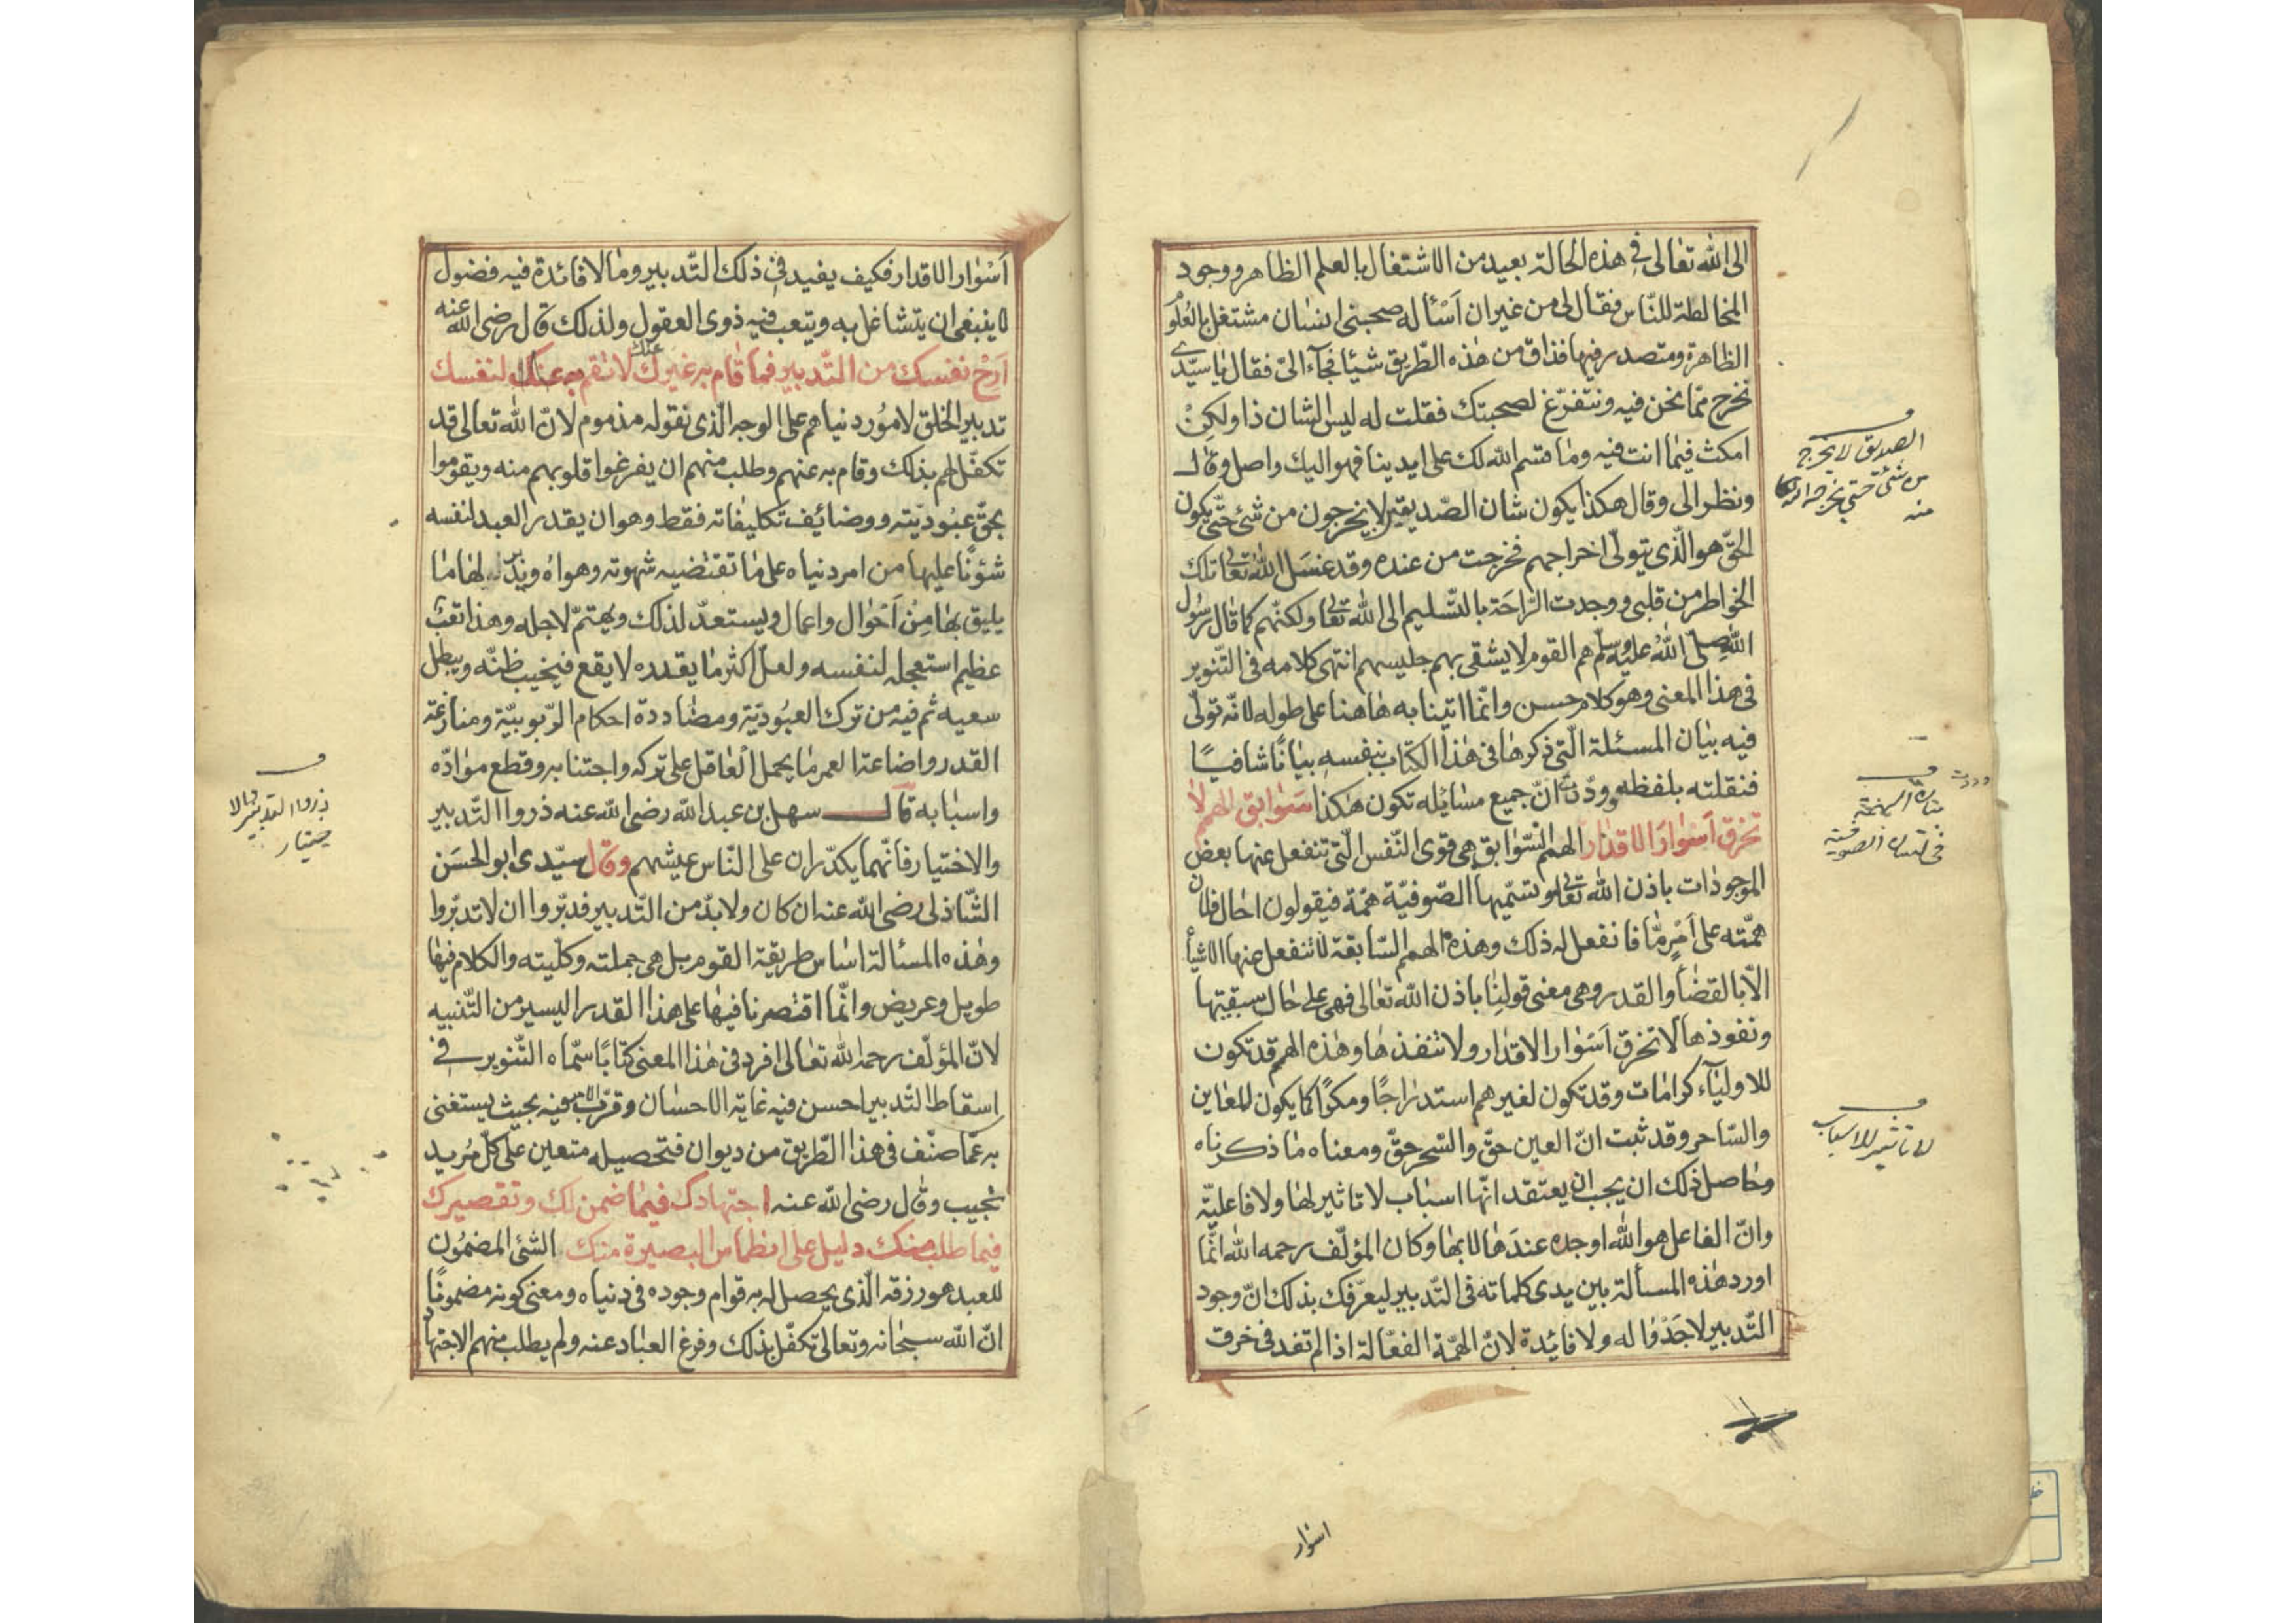 الى الله تعالى فى هذه الحالة بعيد من الاشتغال بالعلم الظاهر ووجود
المخالطة للنّاس فقال لى من غير ان اَسْأله صحبنى انسان مشتغل بالعُلُو
الظاهرة ومتصدر فيها فذاق من هذه الطّريق شيئا فجآء الىّ فقال يا سيّدى
نخرج ممّا نحن فيه ونتفرّغ لصحبتك فقلت له ليس الشان ذا ولكِنْ
امكث فيما انت فيه وما قسم الله لك على ايدينا فهو اليك واصل وقال
ونظر الى وقال هكذا يكون شان الصّديقين لا يخرجون من شئ حتّى يكون
الحقّ هو الّذى يتولّى اخراجهم فخرجت من عنده وقد غسَل اللهُ تعالى تلك
الخواطر من قلبى ووجدت الرّاحَة بالتّسليم الى الله تعالى ولكنّهم كما قال رسُول
اللهِ صلّى اللهُ عليه وسلّم هم القوم لا يشقى بهم جليسهم انتهى كلامه فى التّنوير
فى هذا المعنى وهو كلام حسن وانّما اتينا به هاهنا على طوله لانّه تولّى
فيه بيان المسئلة الّتى ذكرها فى هذا الكتاب بنفسهِ بيانًا شافيًا
فنقلته بلفظه وودّت انّ جميع مسايله تكون هكذا سَوَابق الهمم لا
تخرق اَسْوارَ الاقدار الهمم السّوابق هى قوى النّفس الّتى تنفعل عنها بعض
الموجودات باذن الله تعالى وتسمّيها الصّوفيّة همّة فيقولون احال فلان
همّته على اَمْرٍ مّا فانفعل له ذلك وهذه الهمم السّابقة لا تنفعل عنها الاشيأ
الّا بالقضأ والقدر وهى معنى قولنا باذن الله تعالى فهى على حال سبقيّتها
ونفوذها لا تخرق اَسْوار الاقدار ولا تنفذها وهذه الهمم قد تكون
للاوليآء كرامات وقد تكون لغيرهم استدراجًا ومكرًا كما يكون للعاين
والسّاحر وقد ثبت انّ العين حقّ والسّحر حقّ ومعناه ما ذكرناه
وحاصل ذلك ان يجب ان يعتقد انّها اسباب لا تاثير لها ولا فاعليّة
وانّ الفاعل هو الله اوجده عندَها لا بها وكان المؤلّف رحمه الله انّما
اورد هذه المسألة بين يدى كلماته فى التّدبير ليعرّفك بذلك انّ وجود
التّدبير لا جَدْوا له ولا فايُدة لانّ الهمّة الفعّالة اذا لم تفد فى خرق
الصديق لا يخرج
من شئ حتى يخرجه الله
منه
وددت
فى لسان الصوفية
لا تاثير للاسباب
اسوار
اَسْوار الاقدار فكيف يفيد فى ذلك التّدبير وما لا فائدة فيه فضول
لا ينبغى ان يتشاغل به ويتعب فيه ذوى العقول ولذلك قال رضى الله عنه
اَرِحْ نفسك من التّدبير فما قام به غيرك عنك لا تقم به لنفسك
تدبير الخلق لامُور دنياهم على الوجه الّذى نقوله مذموم لانّ الله تعالى قد
تكفّل لهم بذلك وقام به عنهم وطلب منهم ان يفرغوا قلوبهم منه ويقوموا
بحقّ عبُوديّته ووضائف تكليفاته فقط وهو ان يقدر العبد لنفسه
شؤنًا عليها من امر دنياه على ما تقتضيه شهوته وهواه ويدبّر لها ما
يليق بها مِن اَحْوال واعمال ويستعدّ لذلك ويهتمّ لاجله وهذا تعبٌ
عظيم استعجله لنفسه ولعلّ اكثر ما يقدره لا يقع فيخيب ظنّه ويبطل
سعيه ثم فيه من ترك العبُوديّة ومضاددة احكام الرّبوبيّة ومنازعة
القدر واضاعة العمر ما يحمل العاقل على تركه واجتنابه وقطع موادّه
واسبابه قال سهل بن عبد الله رضى الله عنه ذروا التّدبير
والاختيار فانّهما يكدّران على النّاس عيشهم وقال سيّدى ابو الحسَن
الشّاذلى رضى الله عنه ان كان ولا بدّ من التّدبير فدبّروا ان لا تدبّروا
وهذه المسألة اساس طريقة القوم بل هى جملته وكلّيته والكلام فيها
طويل وعريض وانّما اقتصرنا فيها على هذا القدر اليسير من التّنبيه
لانّ المؤلّف رحمه الله تعالى افرد فى هذا المعنى كتابًا سمّاه التّنوير فى
اسقاط التّدبير احسن فيه غاية الاحسان وقرّب الامر فيه بحيث يستغنى
به عمّا صنّف فى هذا الطّريق من ديوان فتحصيله متعين على كلّ مُريد
نجيب وقال رضى الله عنه اجتهادك فيما ضمن لك وتقصيرك
فيما طلب منك دليل على انطماس البصيرة منك الشئ المضمُون
للعبد هو رزقه الّذى يحصل له به قوام وجوده فى دنياه ومعنى كونه مضمونًا
انّ الله سبحانه وتعالى تكفّل بذلك وفرغ العباد عنه ولم يطلب منهم الاجتهاد
ذروا التدبير والا
ختيار